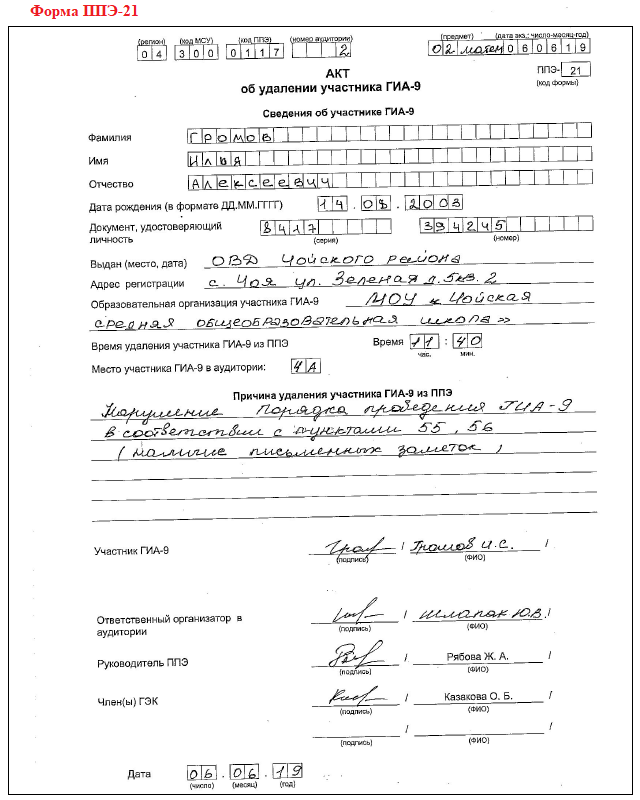 Форма ППЭ-21
(регион) (код МСУ) (код ППЭ) (номер аудитории) (предмет) (дата экз.: число-месяц-год)
04 300 0117 2 02 матем 060619
АКТ
об удалении участника ГИА-9
ППЭ- 21
(код формы)
Сведения об участнике ГИА-9
Фамилия ГРОМОВ
Имя ИЛЬЯ
Отчество АЛЕКСЕЕВИЧ
Дата рождения (в формате ДД.ММ.ГГГГ) 14.08.2003
Документ, удостоверяющий личность 8417 394245
(серия) (номер)
Выдан (место, дата) ОВД Чойского района
Адрес регистрации с. Чоя ул. Зеленая д. 5 кв. 2
Образовательная организация участника ГИА-9 МОУ «Чойская
средняя общеобразовательная школа»
Время удаления участника ГИА-9 из ППЭ Время 11:40
час. мин.
Место участника ГИА-9 в аудитории: 4А
Причина удаления участника ГИА-9 из ППЭ
Нарушение Порядка проведения ГИА-9
в соответствии с пунктами 55, 56
(наличие письменных заметок)
Участник ГИА-9 / Громов И.С. /
(подпись) (ФИО)
Ответственный организатор в аудитории / Шлапак Ю.В. /
(подпись) (ФИО)
Руководитель ППЭ / Рябова Ж. А. /
(подпись) (ФИО)
Член(ы) ГЭК / Казакова О. Б. /
(подпись) (ФИО)
/ /
(подпись) (ФИО)
Дата 06.06.19
(число) (месяц) (год)